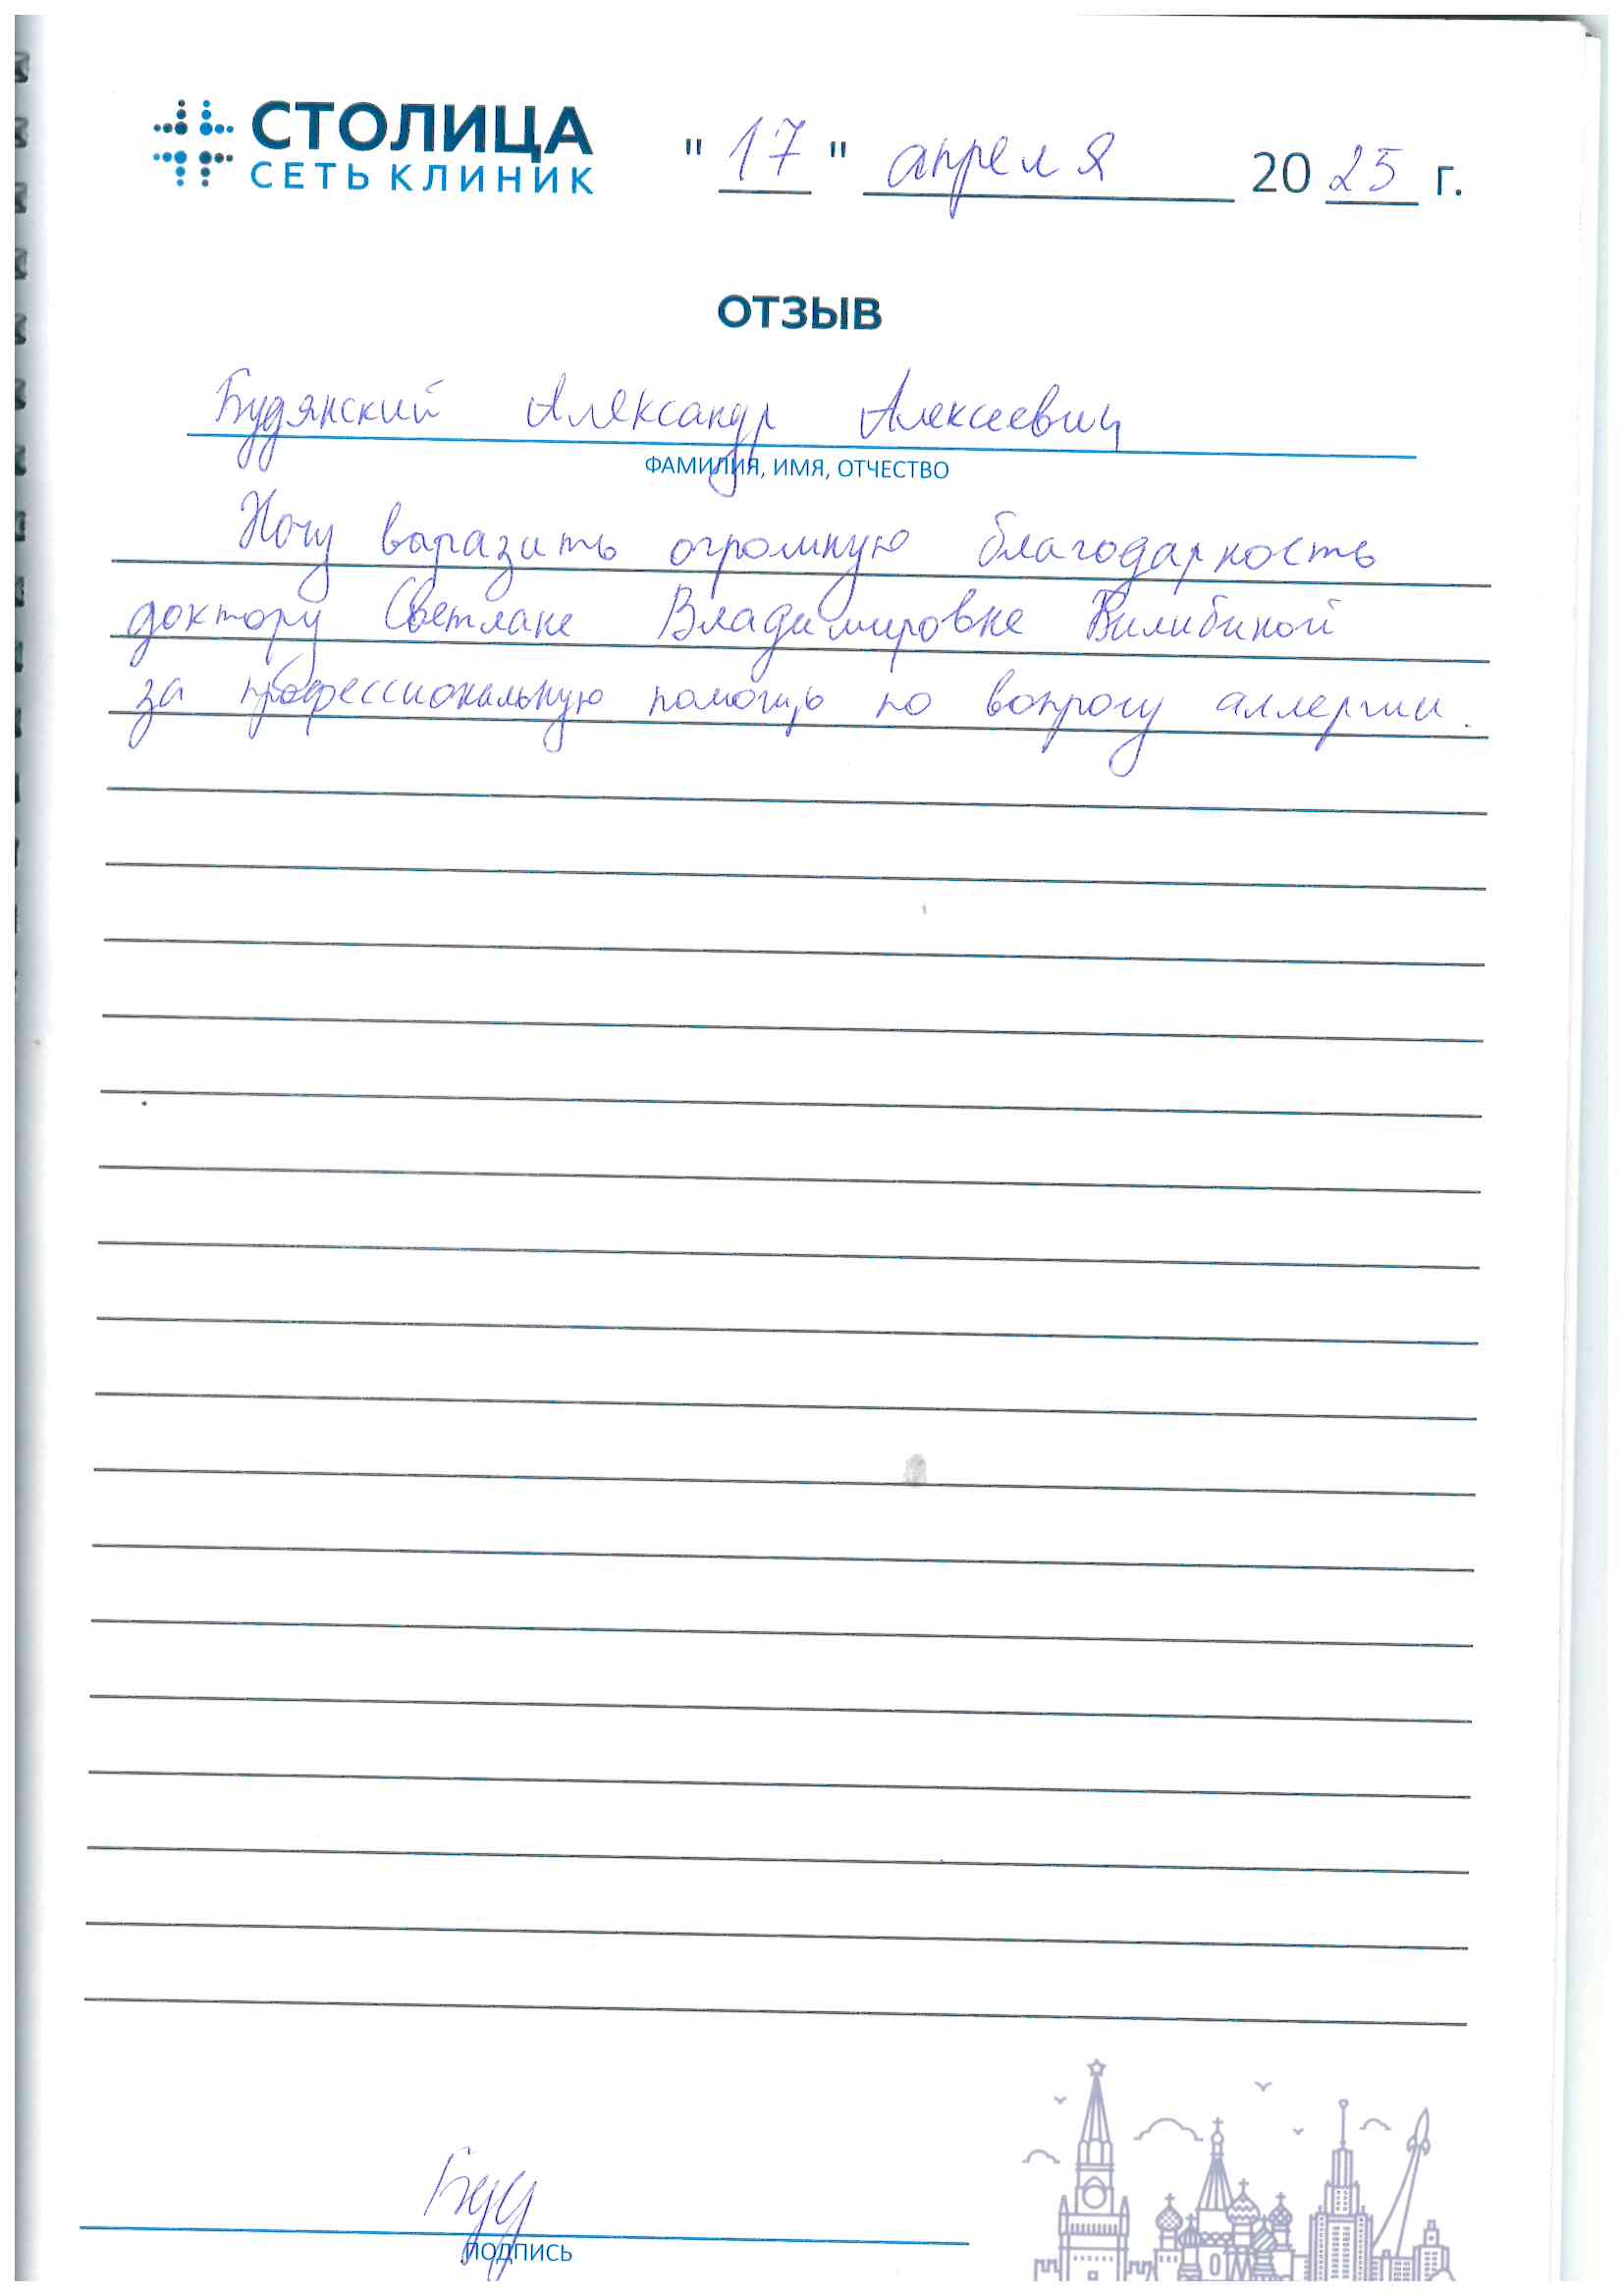 СТОЛИЦА
СЕТЬ КЛИНИК
"17" апреля 2025 г.
ОТЗЫВ
Будянский Александр Алексеевич
ФАМИЛИЯ, ИМЯ, ОТЧЕСТВО
Хочу варазить огромную благодарность
доктору Светлане Владимировне Вилибиной
за профессиональную помощь по вопросу аллергии.
Буд
ПОДПИСЬ